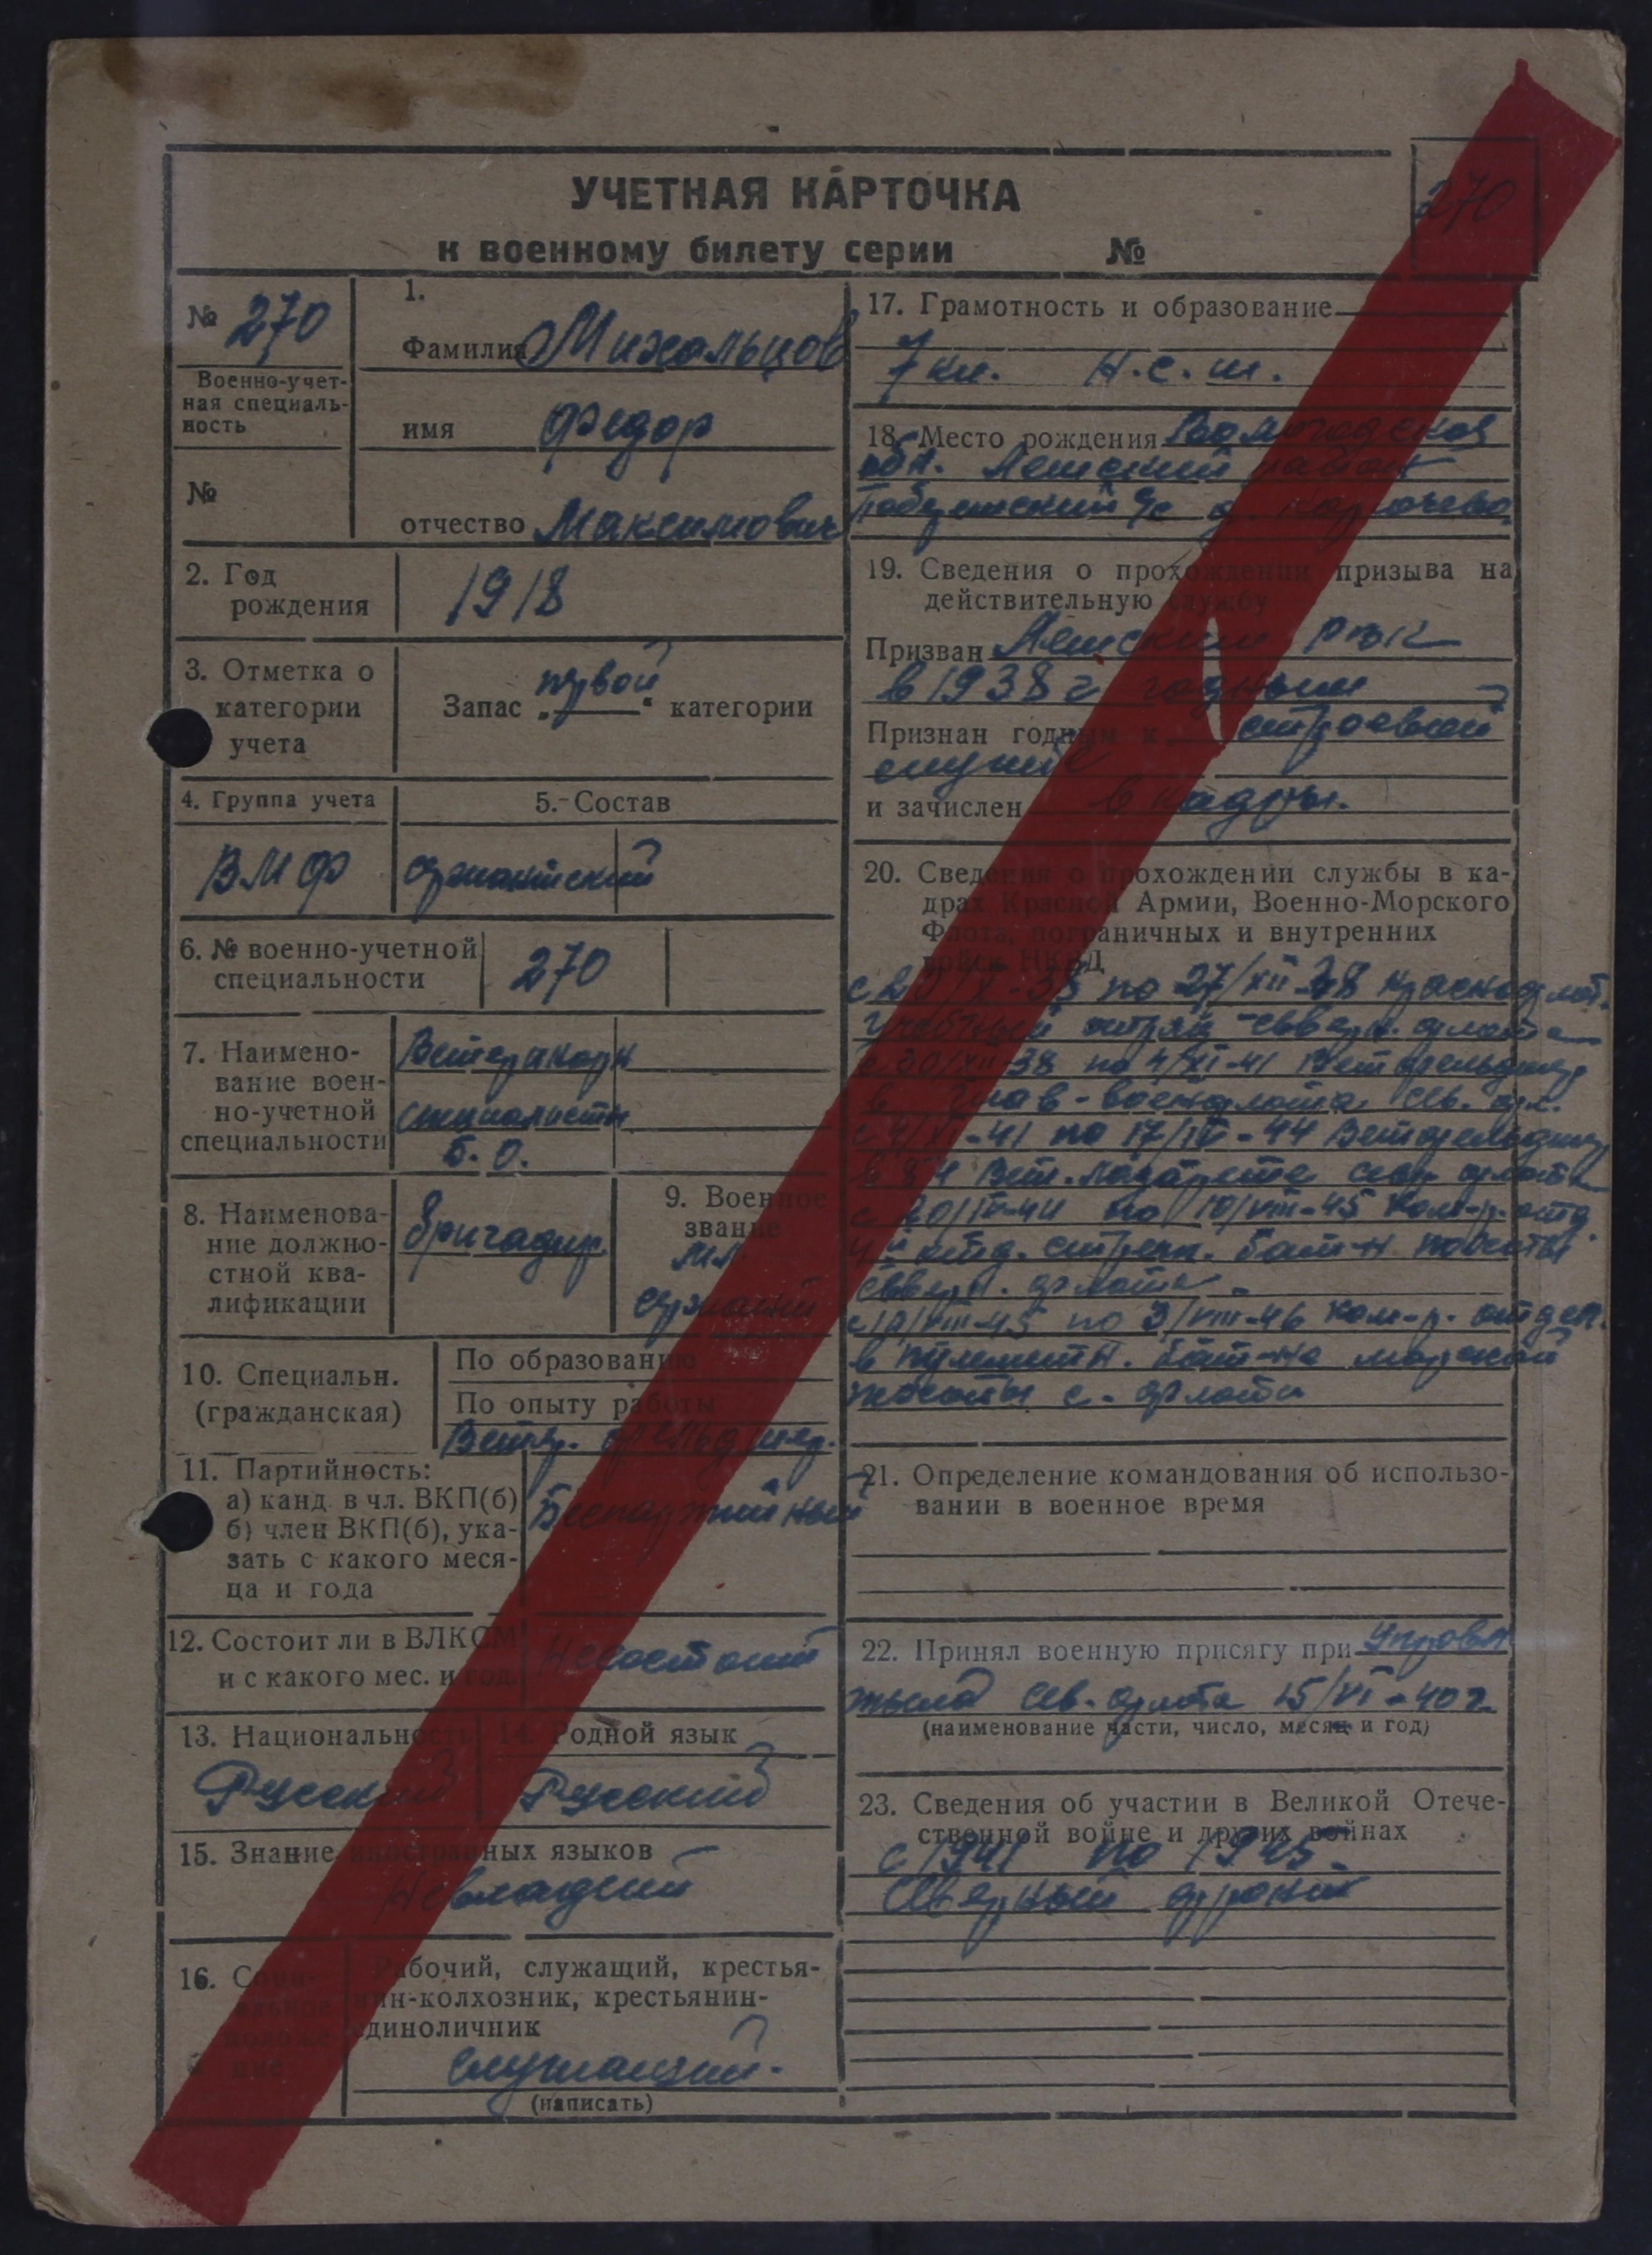 УЧЕТНАЯ КАРТОЧКА
к военному билету серии №
270
№ 270
Военно-учет-
ная специаль-
ность
№
1.
Фамилия Михальцов
имя Федор
отчество Максимович
2. Год
рождения
1918
3. Отметка о
категории
учета
Запас „первой“ категории
4. Группа учета
5. Состав
ВМФ
сержантский
6. № военно-учетной
специальности
270
7. Наимено-
вание воен-
но-учетной
специальности
Ветеринарн
специалисты
б. о.
8. Наименова-
ние должно-
стной ква-
лификации
бригадир
9. Военное
звание
мл.
сержант
10. Специальн.
(гражданская)
По образованию
По опыту работы
Ветер. фельдшер.
11. Партийность:
а) канд. в чл. ВКП(б)
б) член ВКП(б), ука-
зать с какого меся-
ца и года
Беспартийный
12. Состоит ли в ВЛКСМ
и с какого мес. и год.
Несостоит
13. Национальность
14. Родной язык
Русский
Русский
15. Знание иностранных языков
Невладеет
16. Соци-
альное
положе-
ние
Рабочий, служащий, крестья-
нин-колхозник, крестьянин-
единоличник
служащий.
(написать)
17. Грамотность и образование
7 кл. Н.с.ш.
18. Место рождения Вологодская
обл. Ленский район
с/с д.
19. Сведения о прохождении призыва на
действительную службу
Призван Ленским РВК
в 1938 г годным
Признан годным к строевой
службе
и зачислен в кадры.
20. Сведения о прохождении службы в ка-
драх Красной Армии, Военно-Морского
Флота, пограничных и внутренних
войск НКВД
с 20/X-38 по 27/XII-38 краснофлот.
учебный отряд северн. флота
с 30/XII-38 по 4/XI-41 Ветфельдшер
в глав-военфлота сев. фл.
с 4/XI-41 по 17/IV-44 Ветфельдшер
в 84 Вет. лазарете сев. флота
с 20/IV-44 по 10/VIII-45 Ком-р. отд.
4й отд. стрелк. бат-н пехоты
северн. флота
с 10/VIII-45 по 3/VIII-46 ком-р. отдел.
в пулеметн. бат-не морской
пехоты с. флота
21. Определение командования об использо-
вании в военное время
22. Принял военную присягу при управл
тыла Сев. флота 15/VI-40 г.
(наименование части, число, месяц и год)
23. Сведения об участии в Великой Отече-
ственной войне и других войнах
с 1941 по 1945.
Северный фронт